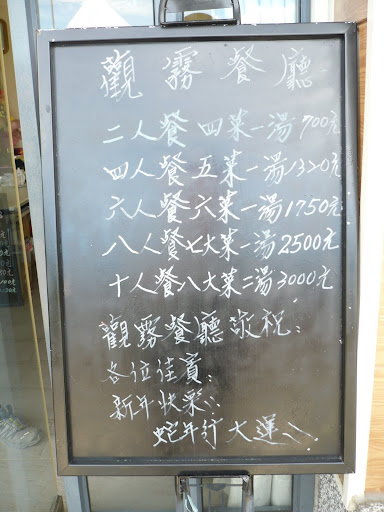 觀霧餐廳
二人餐 四菜一湯 700元
四人餐 五菜一湯 1320元
六人餐 六菜一湯 1750元
八人餐 七大菜一湯 2500元
十人餐 八大菜二湯 3000元
觀霧餐廳敬祝:
各位佳賓:
新年快樂
蛇年行大運